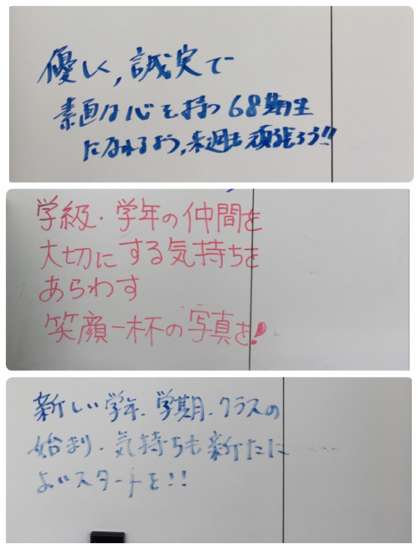 優しく,誠実で
素直な心を持つ68期生
になれるよう,来週も頑張ろう!!
学級・学年の仲間を
大切にする気持ちを
あらわす
笑顔一杯の写真を!
新しい学年、学期、クラスの
始まり、気持ちも新たに
よいスタートを!!